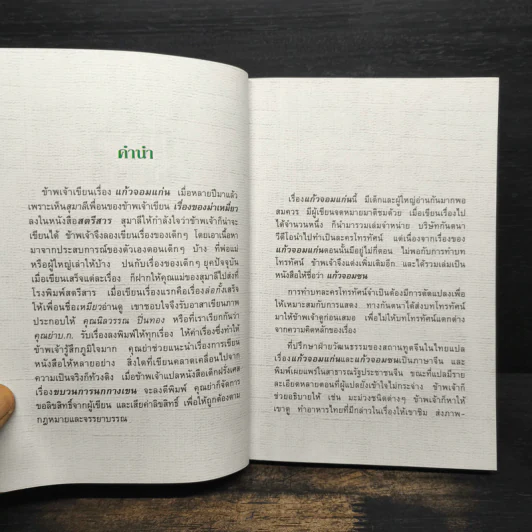 คำนำ
ข้าพเจ้าเขียนเรื่อง แก้วจอมแก่น เมื่อหลายปีมาแล้ว
เพราะเห็นสุมาลีเพื่อนของข้าพเจ้าเขียน เรื่องของม่าเหมี่ยว
ลงในหนังสือสตรีสาร สุมาลีให้กำลังใจว่าข้าพเจ้าก็น่าจะ
เขียนได้ ข้าพเจ้าจึงลองเขียนเรื่องของเด็กๆ โดยเอาเนื้อหา
มาจากประสบการณ์ของตัวเองตอนเด็กๆ บ้าง ที่พ่อแม่
หรือผู้ใหญ่เล่าให้บ้าง ปนกับเรื่องของเด็กๆ ยุคปัจจุบัน
เมื่อเขียนเสร็จแต่ละเรื่อง ก็ฝากให้คุณแม่ของสุมาลีไปส่งที่
โรงพิมพ์สตรีสาร เมื่อเขียนเรื่องแรกคือเรื่องล่อกั๊งเสร็จ
ให้เพื่อนชื่อเหมียวอ่านดู เขาชอบใจจึงรับอาสาเขียนภาพ
ประกอบให้ คุณนิลวรรณ ปิ่นทอง หรือที่เราเรียกกันว่า
คุณย่าบ.ก. รับเรื่องลงพิมพ์ให้ทุกเรื่อง ให้ค่าเรื่องซึ่งทำให้
ข้าพเจ้ารู้สึกภูมิใจมาก คุณย่าช่วยแนะนำเรื่องการเขียน
หนังสือให้หลายอย่าง สิ่งใดที่เขียนคลาดเคลื่อนไปจาก
ความเป็นจริงก็ท้วงติง เมื่อข้าพเจ้าแปลหนังสือเด็กฝรั่งเศส
เรื่องขบวนการนกกางเขน จะลงตีพิมพ์ คุณย่าก็จัดการ
ขอลิขสิทธิ์จากผู้เขียน และเสียค่าลิขสิทธิ์ เพื่อให้ถูกต้องตาม
กฎหมายและจรรยาบรรณ
เรื่องแก้วจอมแก่นนี้ มีเด็กและผู้ใหญ่อ่านกันมากพอ
สมควร มีผู้เขียนจดหมายมาติชมด้วย เมื่อเขียนเรื่องไป
ได้จำนวนหนึ่ง ก็นำมารวมเล่มจำหน่าย บริษัทกันตนา
วีดีโอนำไปทำเป็นละครโทรทัศน์ แต่เนื่องจากเรื่องของ
แก้วจอมแก่นตอนนั้นมีอยู่ไม่กี่ตอน ไม่พอกับการทำบท
โทรทัศน์ ข้าพเจ้าจึงแต่งเพิ่มเติมอีก และได้รวมเล่มเป็น
หนังสือให้ชื่อว่า แก้วจอมซน
การทำบทละครโทรทัศน์จำเป็นต้องมีการดัดแปลงเพื่อ
ให้เหมาะสมกับการแสดง ทางกันตนาได้ส่งบทโทรทัศน์
มาให้ข้าพเจ้าดูก่อนเสมอ เพื่อไม่ให้บทโทรทัศน์แตกต่าง
จากความคิดหลักของเรื่อง
ที่ปรึกษาฝ่ายวัฒนธรรมของสถานทูตจีนในไทยแปล
เรื่องแก้วจอมแก่นและแก้วจอมซนเป็นภาษาจีน และ
พิมพ์เผยแพร่ในสาธารณรัฐประชาชนจีน ขณะที่แปลมีราย
ละเอียดหลายตอนที่ผู้แปลยังเข้าใจไม่กระจ่าง ข้าพเจ้าก็
ช่วยอธิบายให้ เช่น มะม่วงชนิดต่างๆ ข้าพเจ้าก็หาให้
เขาดู ทำอาหารไทยที่มีกล่าวในเรื่องให้เขาชิม ส่งภาพ-